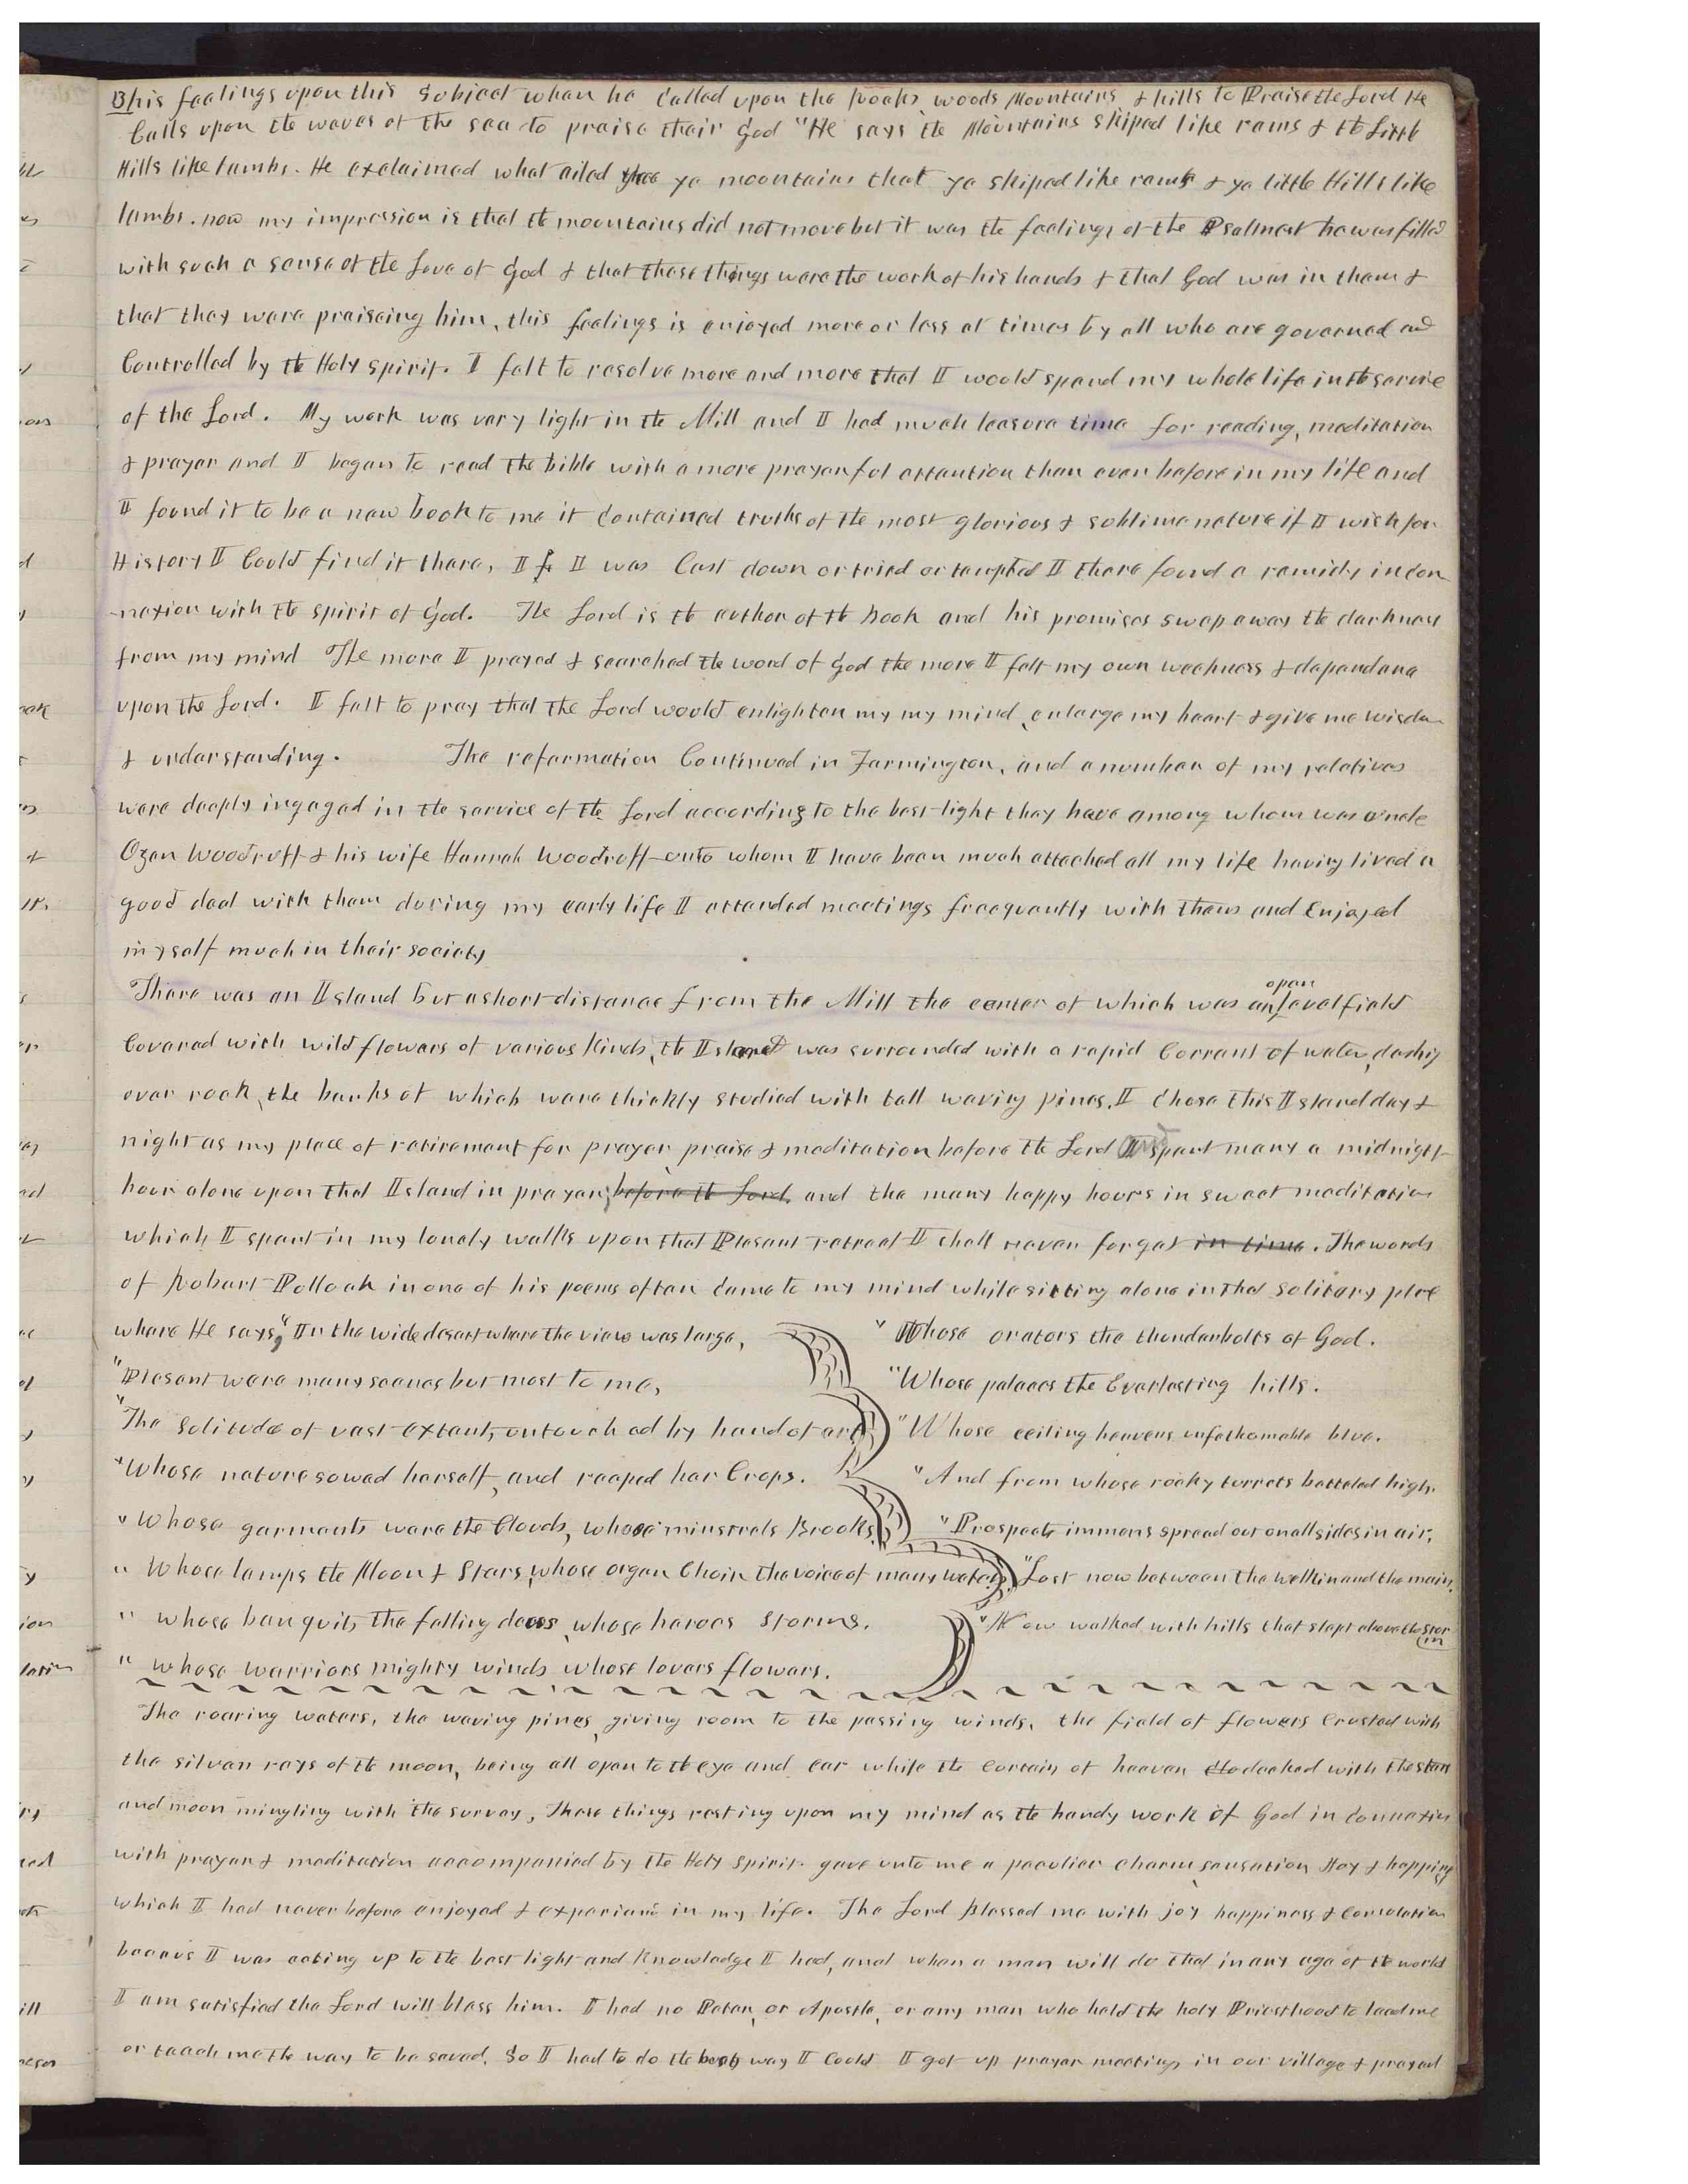 13 his feelings upon this subject when he Called upon the Rocks woods Mountains & hills to Praise the Lord He
Calls upon the waves of the sea to praise their God "He says the Mountains skiped like rams & the Little
Hills like lambs. He exclaimed what ailed ye mountains that ye skiped like rams & ye little Hills like
lambs. now my impression is that the mountains did not move but it was the feelings of the Psalmest he was filled
with such a sense of the Love of God & that these things were the work of his hands & that God was in them &
that they were praiseing him, this feelings is enjoyed more or less at times by all who are governed and
Controlled by the Holy spirit. I felt to resolve more and more that I would spend my whole life in the service
of the Lord. My work was very light in the Mill and I had much leasure time for reading, meditation
& prayer and I began to read the bible with a more prayerful attention than ever before in my life and
I found it to be a new book to me it Contained truths of the most glorious & sublime nature if I wish for
History I Could find it there, If I was Cast down or tried or tempted I there found a remidy in Con-
-nexion with the spirit of God. The Lord is the author of the Book and his promises swep away the darkness
from my mind The more I prayed & searched the word of God the more I felt my own weakness & dependance
upon the Lord. I felt to pray that the Lord would enlighten my my mind, enlarge my heart & give me wisdom
& understanding. The reformation Continued in Farmington, and a number of my relatives
were deeply ingaged in the service of the Lord according to the best light they have among whom was uncle
Ozen Woodruff & his wife Hannah Woodruff unto whom I have been much attached all my life having lived a
good deal with them during my early life I attended meetings freequently with them and Enjoyed
myself much in their society
open
There was an Island but a short distance from the Mill the center of which was an level field
Covered with wild flowers of various Kinds, the Island was surrounded with a rapid Current of water, dashing
over rock, the banks of which were thickly studied with tall waving pines. I Chose this Island day &
night as my place of retirement for prayer, praise & meditation before the Lord and spent many a midnight
hour alone upon that Island in prayer, before the Lord, and the many happy hours in sweet meditation
which I spent in my lonely walks upon that Plesant retreat I shall never forget in time. The words
of Robert Pollock in one of his poems often Came to my mind while sitting alone in that solitary place
where He says, "In the wide desert where the view was large,
"Plesant were many scenes but most to me,
"The solitude of vast extent, untouched by hand of art
"Whose nature sowed herself, and reaped her Crops.
"Whose garments were the Clouds, whose minstrels Brooks,
"Whose lamps the Moon & Stars, whose organ Choir the voice of many waters.
"whose banquits the falling dews, whose heroes storms.
"whose warriors mighty winds whose lovers flowers.
"Whose orators the thunderbolts of God.
"Whose palaces the Everlasting hills.
"Whose ceiling heavens unfathomable blue.
"And from whose rocky turrets batteled high.
"Prospects immens spread out on all sides in air,
"Lost now between the welkin and the main.
"Now walked with hills that slept above the stor
m
The roaring waters, the waving pines, giving room to the passing winds, the field of flowers Crusted with
the silver rays of the moon, being all open to the eye and ear while the Curtain of heaven decked with the stars
and moon mingling with the survey, These things resting upon my mind as the handy work of God in Connexion
with prayer & meditation accompanied by the Holy spirit gave unto me a peculier charm, sensation Joy & happiness
which I had never before enjoyed & experianc in my life. The Lord blessed me with joy happiness & Consolation
becaus I was acting up to the best light and Knowledge I had, and when a man will do that in any age of the world
I am satisfied the Lord will bless him. I had no Peter, or Apostle, or any man who held the holy Priesthood to lead me
or teach me the way to be saved. So I had to do the best way I Could I got up prayer meetings in our village & prayed